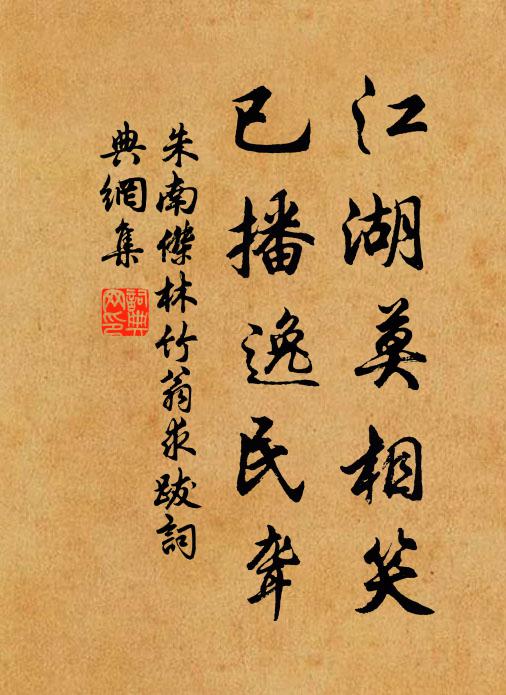 江湖莫相笑
已播逸民聲
朱南傑林竹翁求跋詞
典網集
詞典
网印